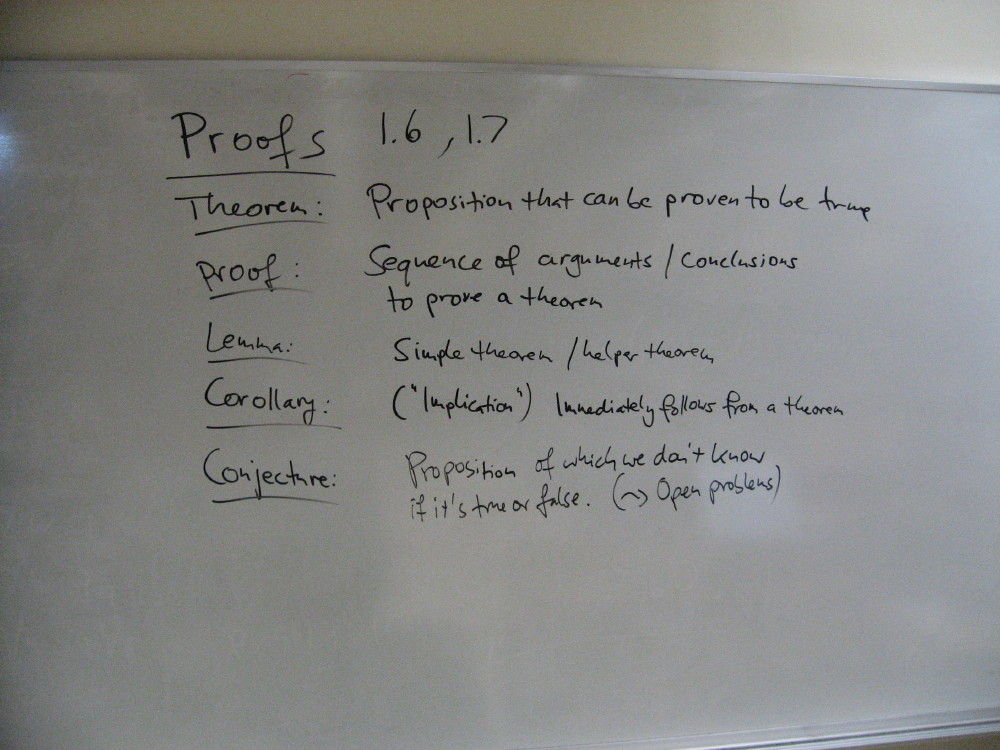 Proofs 1.6, 1.7
Theorem: Proposition that can be proven to be true
Proof: Sequence of arguments / Conclusions
to prove a theorem
Lemma: Simple theorem / helper theorem
Corollary: ("Implication") Immediately follows from a theorem
Conjecture: Proposition of which we don't know
if it's true or false. (~> Open problems)